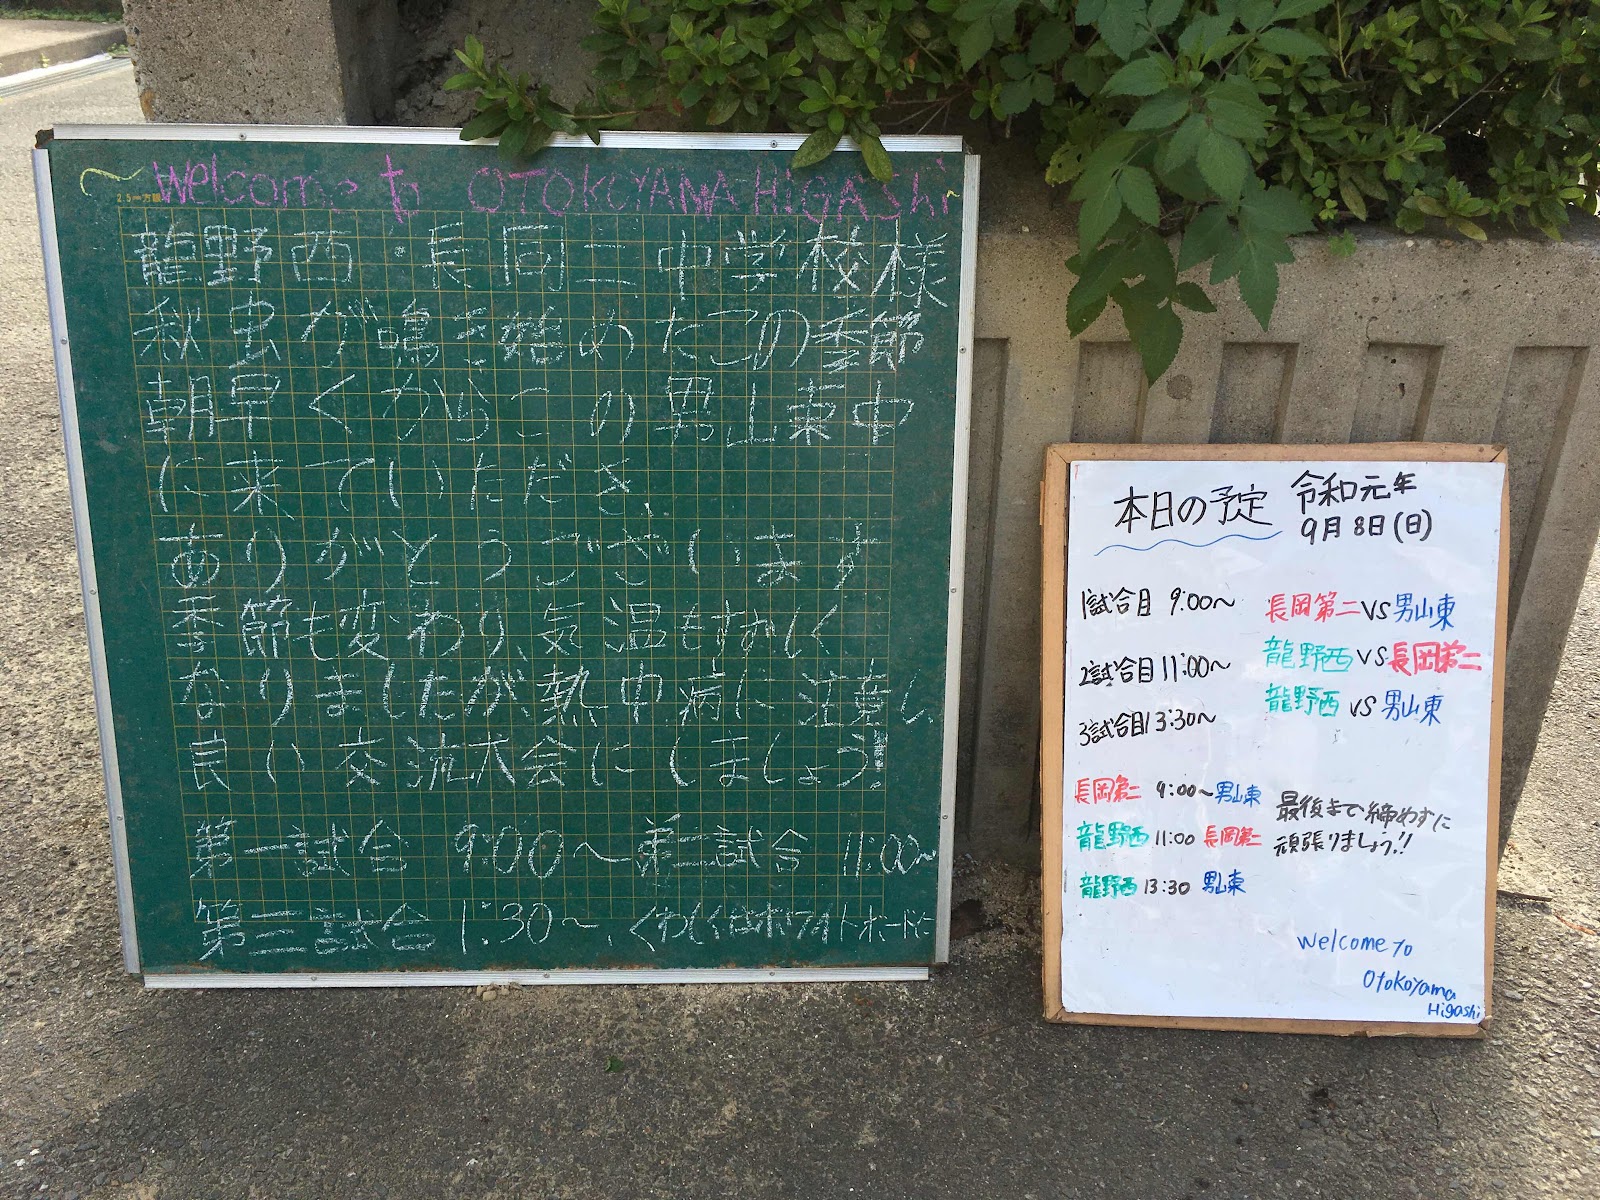 ~Welcome to OTOKOYAMA HiGAShi~
2.5cm方眼
龍野西・長岡二中学校様
秋虫が鳴き始めたこの季節
朝早くからこの男山東中
に来ていただき、
ありがとうございます
季節も変わり、気温もすずしく
なりましたが熱中病に注意し、
良い交流大会にしましょう!
第一試合 9:00～第二試合 11:00～
第三試合 1:30～、くわしくはホワイトボードに
本日の予定 令和元年
9月8日(日)
1試合目 9:00～ 長岡第二VS男山東
2試合目 11:00～ 龍野西VS長岡第二
3試合目13:30～ 龍野西VS男山東
長岡第二 9:00～男山東
龍野西 11:00 長岡第二
龍野西 13:30 男山東
最後まで締めずに
頑張りましょう!!
Welcome To
Otokoyama
Higashi